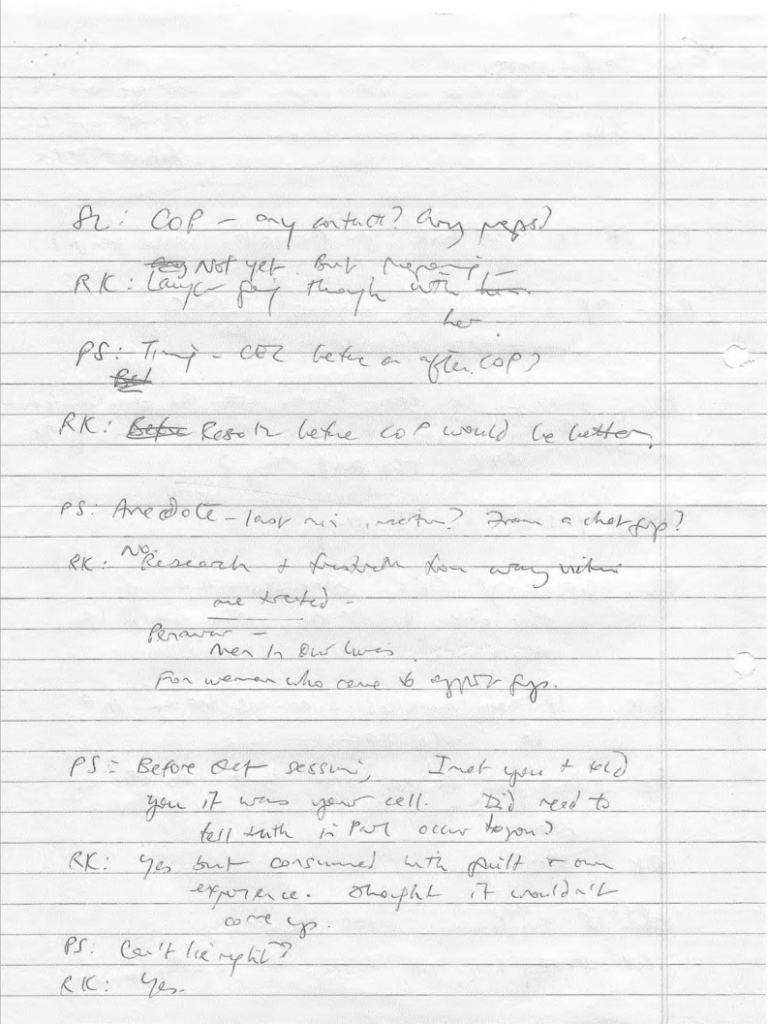 SL: COP – any contact? Any preps?
Not yet. But preparing –
RK: Lawyer going through with
her.
PS: Timing – before or after COP?
RK: Before Resolve before COP would be better.
PS: Anecdote – last min, ? From a chat grp?
RK: No. Research + from way victims
are treated –
Men in Our Lives
For women who come to support grps.
PS: Before Oct session, I met you + told
you it was your call. Did need to
tell truth in Parl occur to you?
RK: Yes but consumed with guilt + own
experience. Thought it wouldn't
come up.
PS: Can't lie right?
RK: Yes.